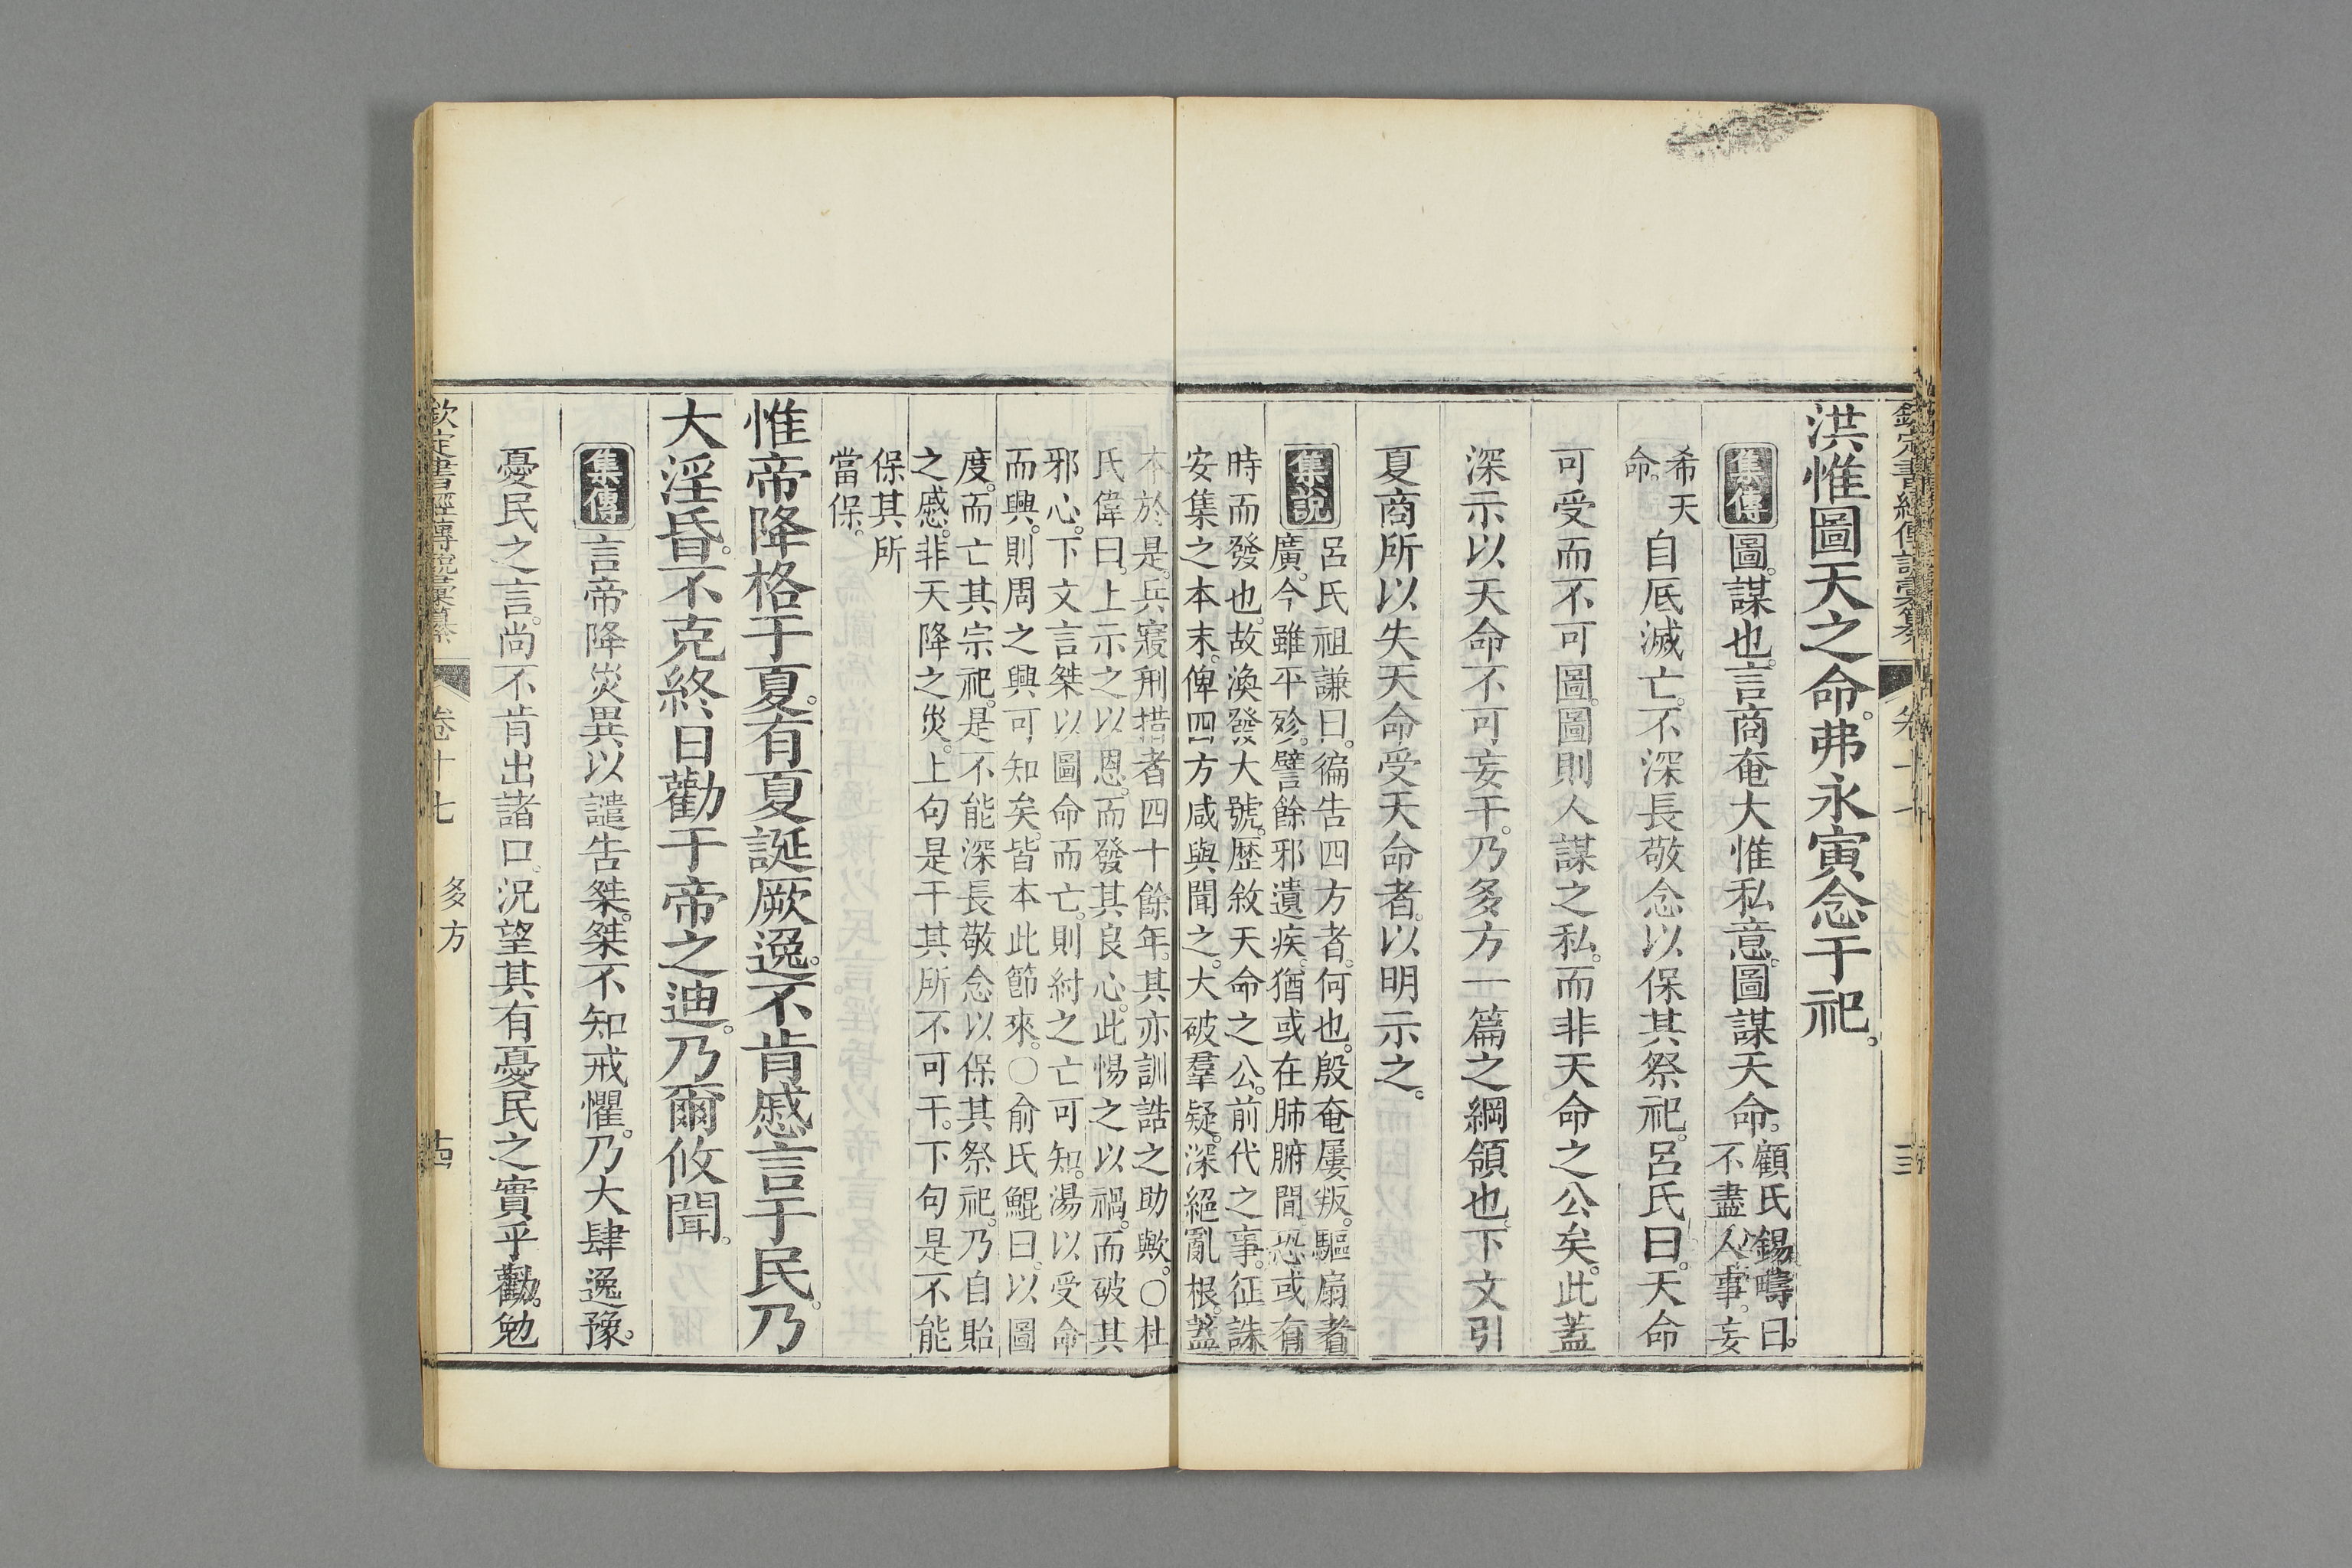 洪惟圖天之命。弗永寅念于祀。
集傳 圖。謀也。言商奄大惟私意。圖謀天命。顧氏錫疇曰。
不盡人事。妄
希天
命。
自厎滅亡。不深長敬念以保其祭祀。呂氏曰。天命
可受而不可圖。圖則人謀之私。而非天命之公矣。此蓋
深示以天命不可妄干。乃多方一篇之綱領也。下文引
夏商所以失天命受天命者。以明示之。
集說 呂氏祖謙曰。徧告四方者。何也。殷奄屢叛。驅扇者
廣。今雖平殄。譬餘邪遺疾。猶或在肺腑間。恐或有
時而發也。故渙發大號。歷敘天命之公。前代之事。征誅
安集之本末。俾四方咸與聞之。大破羣疑。深絕亂根。蓋
本於是。兵寢刑措者四十餘年。其亦訓誥之助歟。○杜
氏偉曰。上示之以恩。而發其良心。此惕之以禍。而破其
邪心。下文言桀以圖命而亡。則紂之亡可知。湯以受命
而興。則周之興可知矣。皆本此節來。○俞氏鯤曰。以圖
度。而亡其宗祀。是不能深長敬念以保其祭祀。乃自貽
之慼。非天降之災。上句是干其所不可干。下句是不能
保其所
當保。
惟帝降格于夏。有夏誕厥逸。不肯慼言于民。乃
大淫昏。不克終日勸于帝之迪。乃爾攸聞。
集傳 言帝降災異以譴告桀。桀不知戒懼。乃大肆逸豫。
憂民之言。尚不肯出諸口。況望其有憂民之實乎。勸。勉
欽定書經傳說彙纂 卷十七 多方 十四